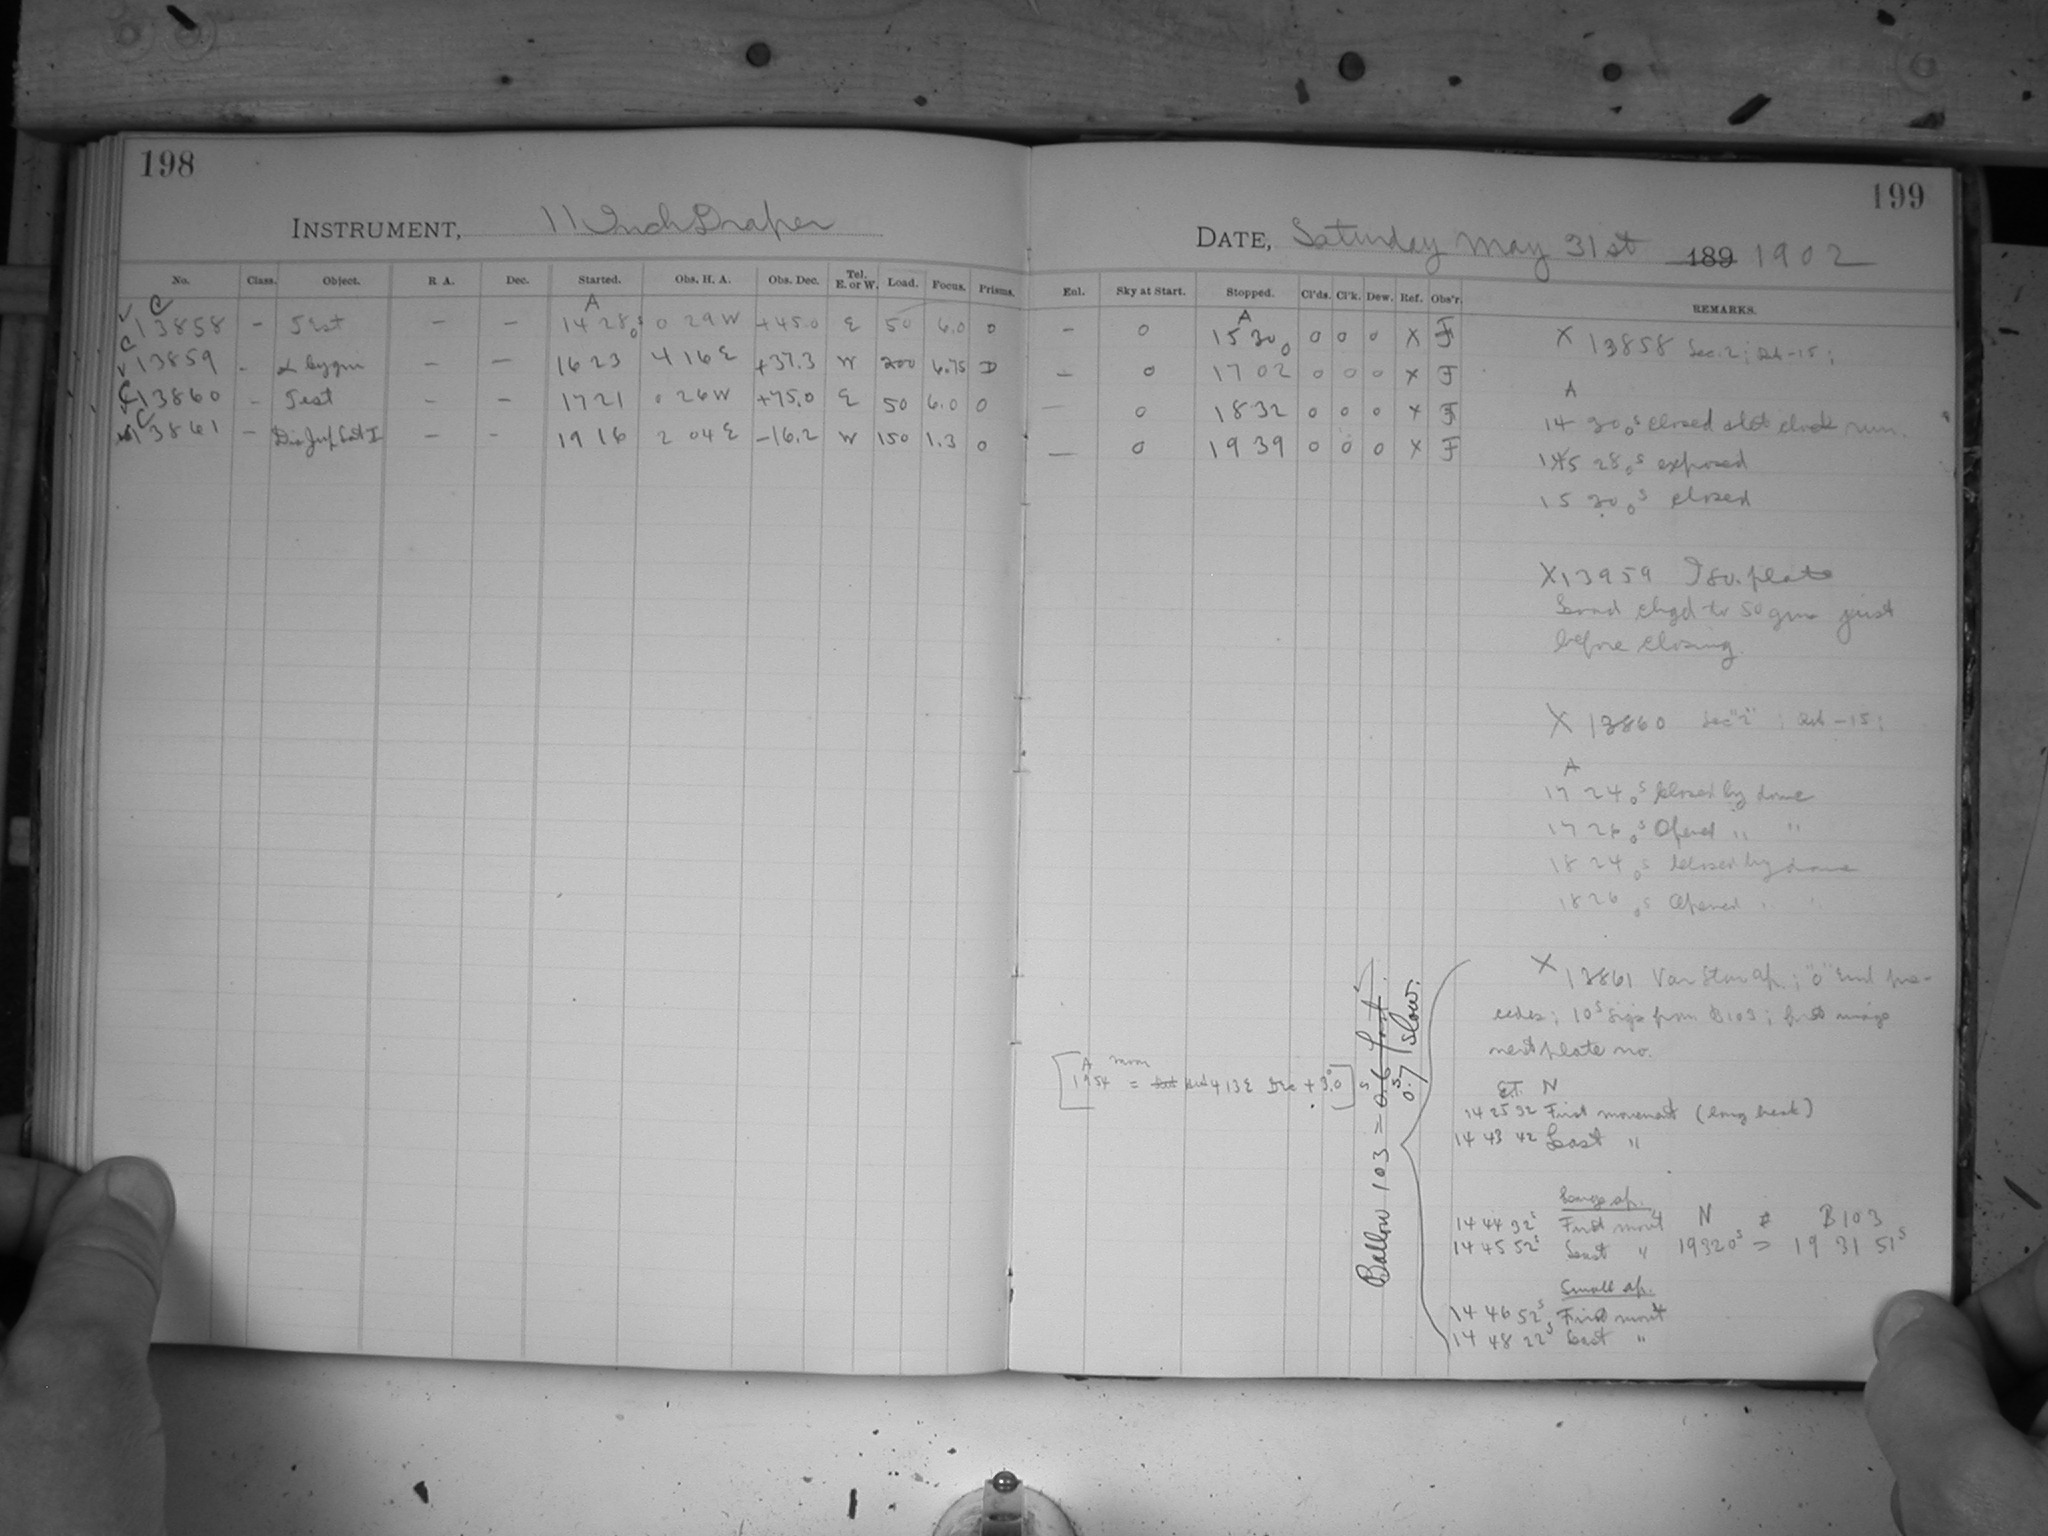 198
INSTRUMENT, 11 Inch Draper
No. Class. Object. R A. Dec. Started. Obs. H. A. Obs. Dec. Tel. E. or W. Load. Focus. Prisms.
A
13858 — Test — — 14 28 0s 0 29 W +45.0 E 50 6.0 0
13859 - α Cygni — — 16 23 4 16 E +37.3 W 200 6.75 D
13860 — Test — — 17 21 0 26 W +75.0 E 50 6.0 0
13861 — Jup Sat I — - 19 16 2 04 E -16.2 W 150 1.3 0
199
DATE, Saturday May 31st 189 1902
Enl. Sky at Start. Stopped. Cl'ds. Cl'k. Dew. Ref. Obs'r. REMARKS.
A
- 0 15 30 0 0 0 0 X F
— 0 17 02 0 0 0 X F
— 0 18 32 0 0 0 X F
— 0 19 39 0 0 0 X F
X 13858 Sec. 2; -15;
A
14 30 0s closed
28 0s exposed
15 30 0s closed
X 13959 Iso. plate
Load chgd to 50 gms just
before closing.
X 13860 Sec "2"; -15;
A
17 24 0s closed by dome
17 26 0s Opened " "
18 24 0s closed by dome
18 26 0s Opened " "
X 13861 Var Stan ap.; "0" end pre-
cedes; 10s sigs from B103; first image
next plate no.
E.T. N
14 25 32 First movement (long break)
14 43 42 Last "
Large ap.
14 44 32s First movt N B103
14 45 52s Last " 19 32 0s = 19 31 51s
Small ap.
14 46 52s First movt
14 48 22s Last "
A moon
[19 54 = 4 13 E Dec + 3.0]
Ballou 103 = 0.6 fast.
0s.7 slow.